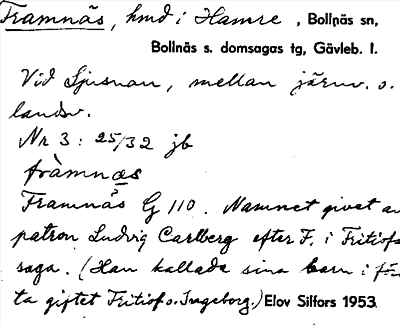 Framnäs, hmd i Hamre, Bollnäs sn,
Bollnäs s. domsagas tg, Gävleb. l.
Vid Ljusnan, mellan järnv. o.
landsv.
Nr 3 : 25/32 jb
fràmnæs
Framnäs G 110. Namnet givet av
patron Ludvig Carlberg efter F. i Fritiofs
saga. (Han kallade sina barn i förs
ta giftet Fritiof o. Ingeborg.) Elov Silfors 1953.